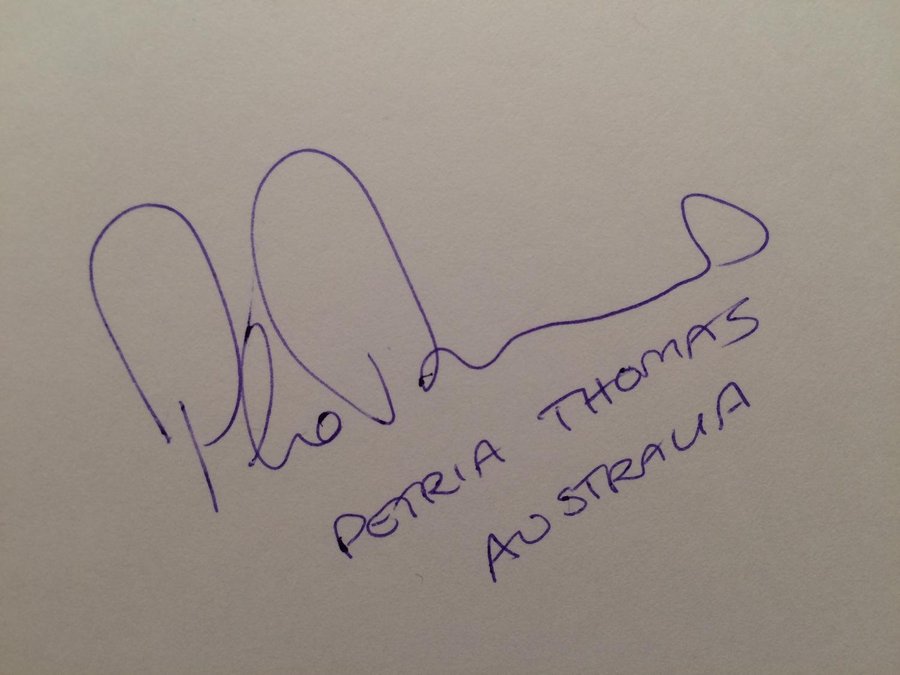 PETRIA THOMAS
AUSTRALIA